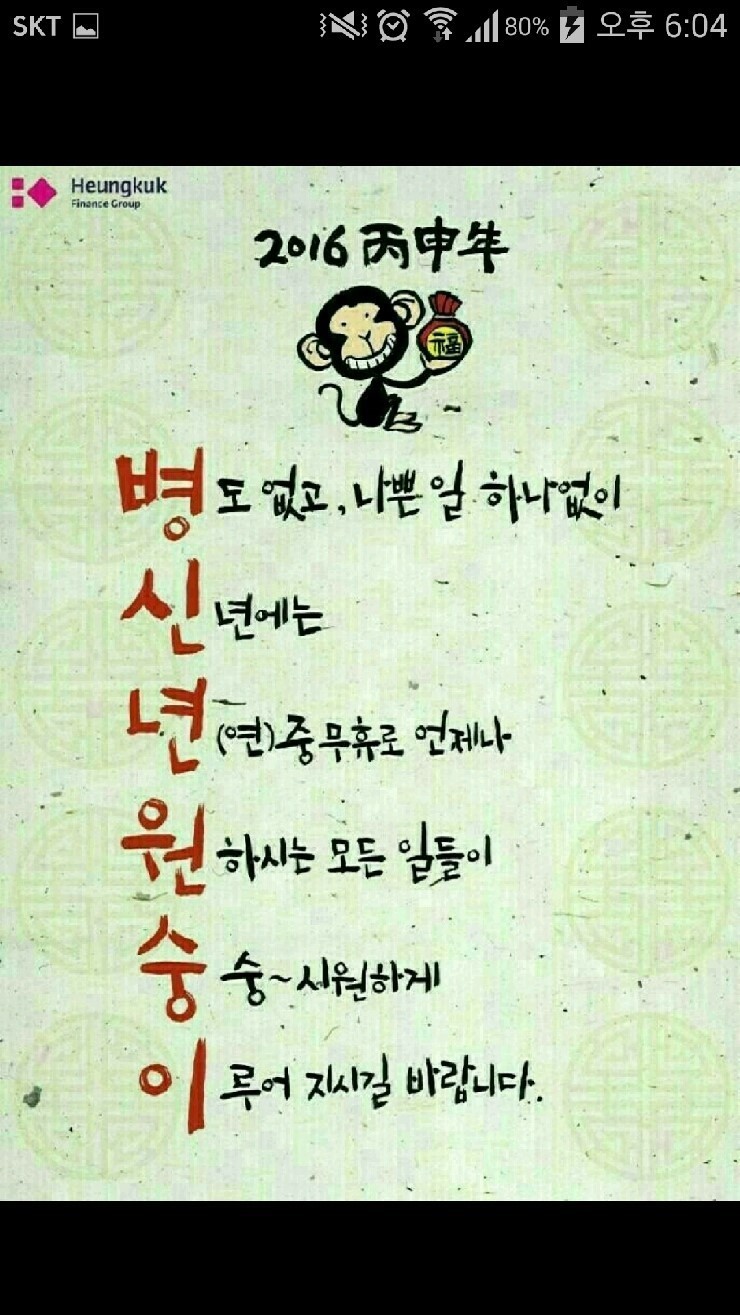 SKT 80% 오후 6:04
Heungkuk
Finance Group
2016 丙申年
福
병도 없고, 나쁜 일 하나없이
신년에는
년(연)중무휴로 언제나
원하시는 모든 일들이
숭숭~시원하게
이루어 지시길 바랍니다.